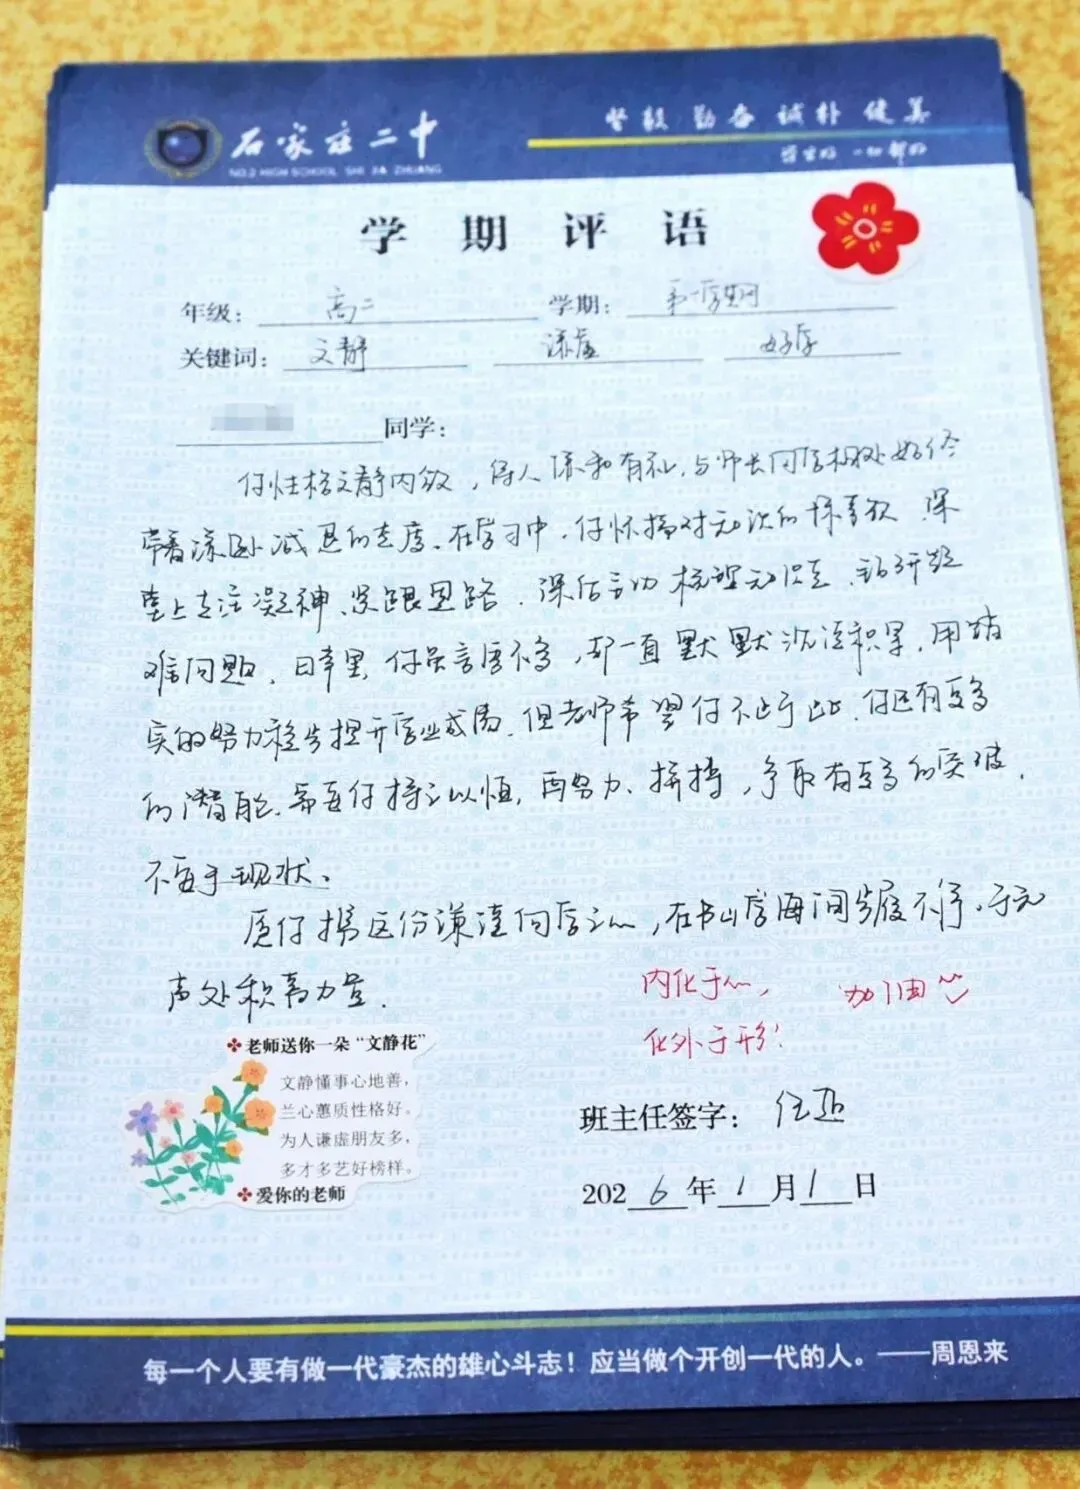 石家庄二中
NO.2 HIGH SCHOOL SHI JIA ZHUANG
坚毅 勤奋 诚朴 健美
学期评语
年级：高二 学期：第一学期
关键词：文静 谦虚 好学
同学：
你性格文静内敛，待人谦和有礼，与师长同学相处始终
带着谦卑感恩的态度。在学习中，你怀揣对知识的
堂上专注凝神、紧跟思路，课后主动梳理知识点、钻研疑
难问题。日常里，你虽言语不多，却一直默默沉淀积累，用踏
实的努力稳步提升学业成绩。但老师希望你不止于此，你还有更多
的潜能。希望你持之以恒，再努力、拼搏，争取有更多的突破，
不安于现状。
愿你揣这份谦谨向学之心，在书山学海间步履不停，于无
声处积蓄力量。
内化于心，
加油
化外于形！
老师送你一朵“文静花”
文静懂事心地善，
兰心蕙质性格好。
为人谦虚朋友多，
多才多艺好榜样。
爱你的老师
班主任签字：
2026年1月1日
每一个人要有做一代豪杰的雄心斗志！应当做个开创一代的人。——周恩来